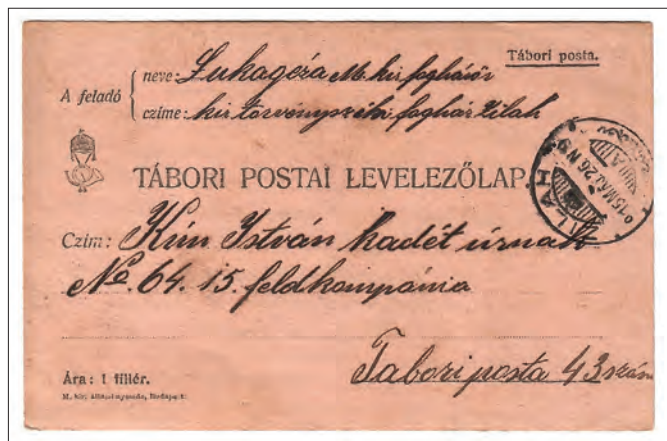 Tábori posta.
A feladó
neve: Luka Géza M. kir. fogházőr
czime: kir törvényszéki fogház Zilah
ZILAH
915 MÁJ. 26 N9
TÁBORI POSTAI LEVELEZŐLAP.
Czim: Kún István kadét úrnak
No. 64. 15. feldkompánia
Tabori posta 43 szám
Ára: 1 fillér.
M. kir. állami nyomda, Budapest.